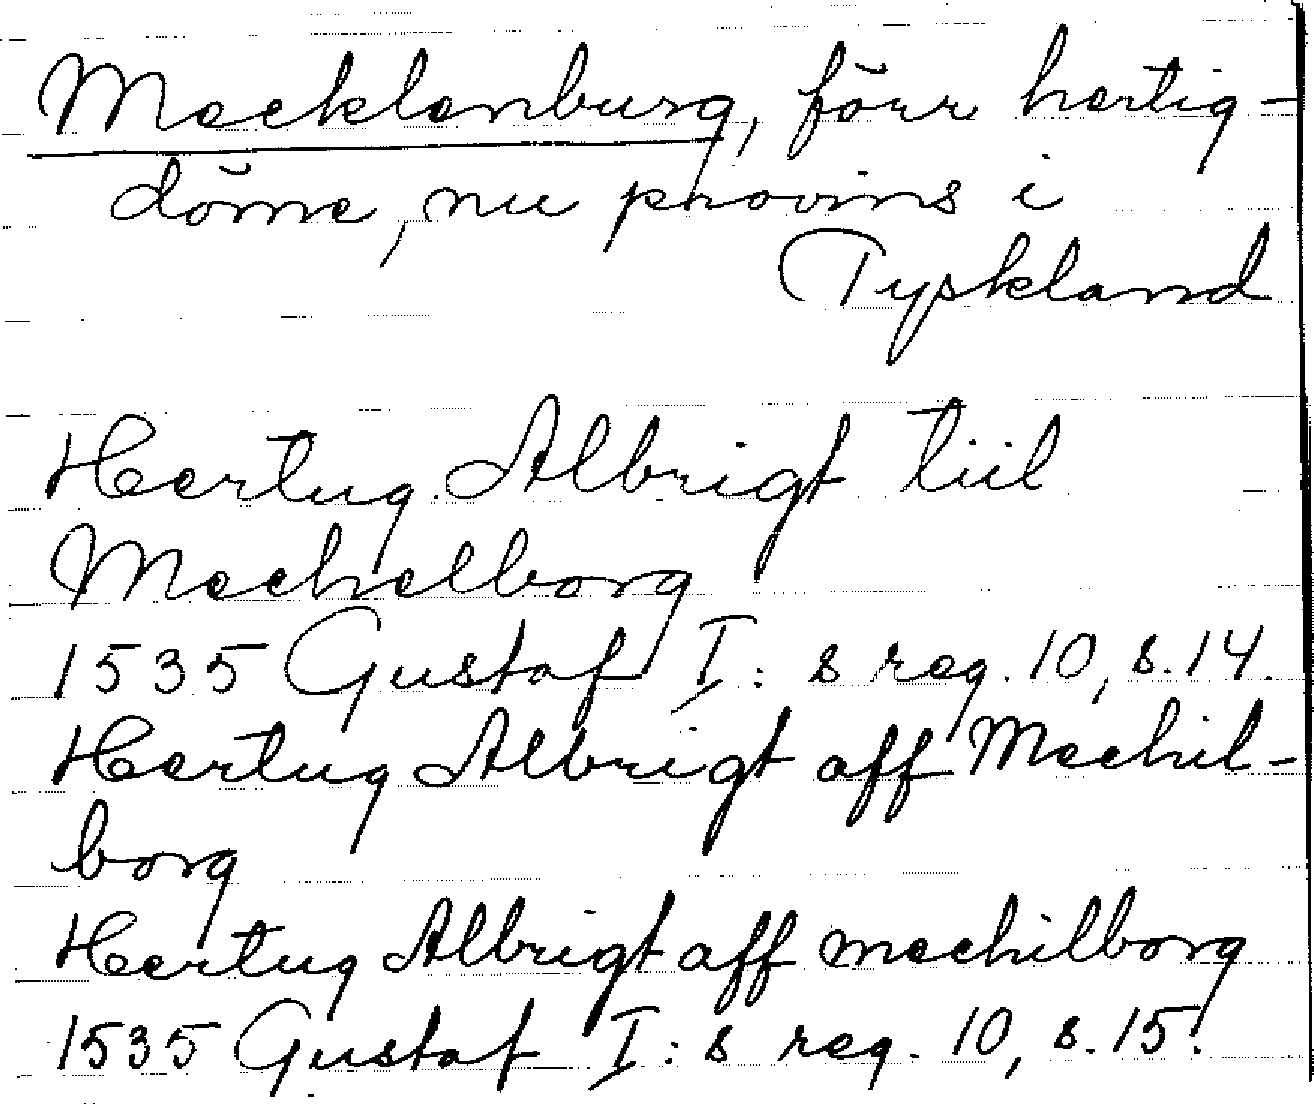 Mecklenburg, förr hertig-
döme, nu provins i
Tyskland
Hertug Albrigt tiil
Mechelborg
1535 Gustaf I: s reg. 10, s. 14.
Hertug Albrigt aff Mechil-
borg
Hertug Albrigt aff mechilborg
1535 Gustaf I: s reg. 10, s. 15.